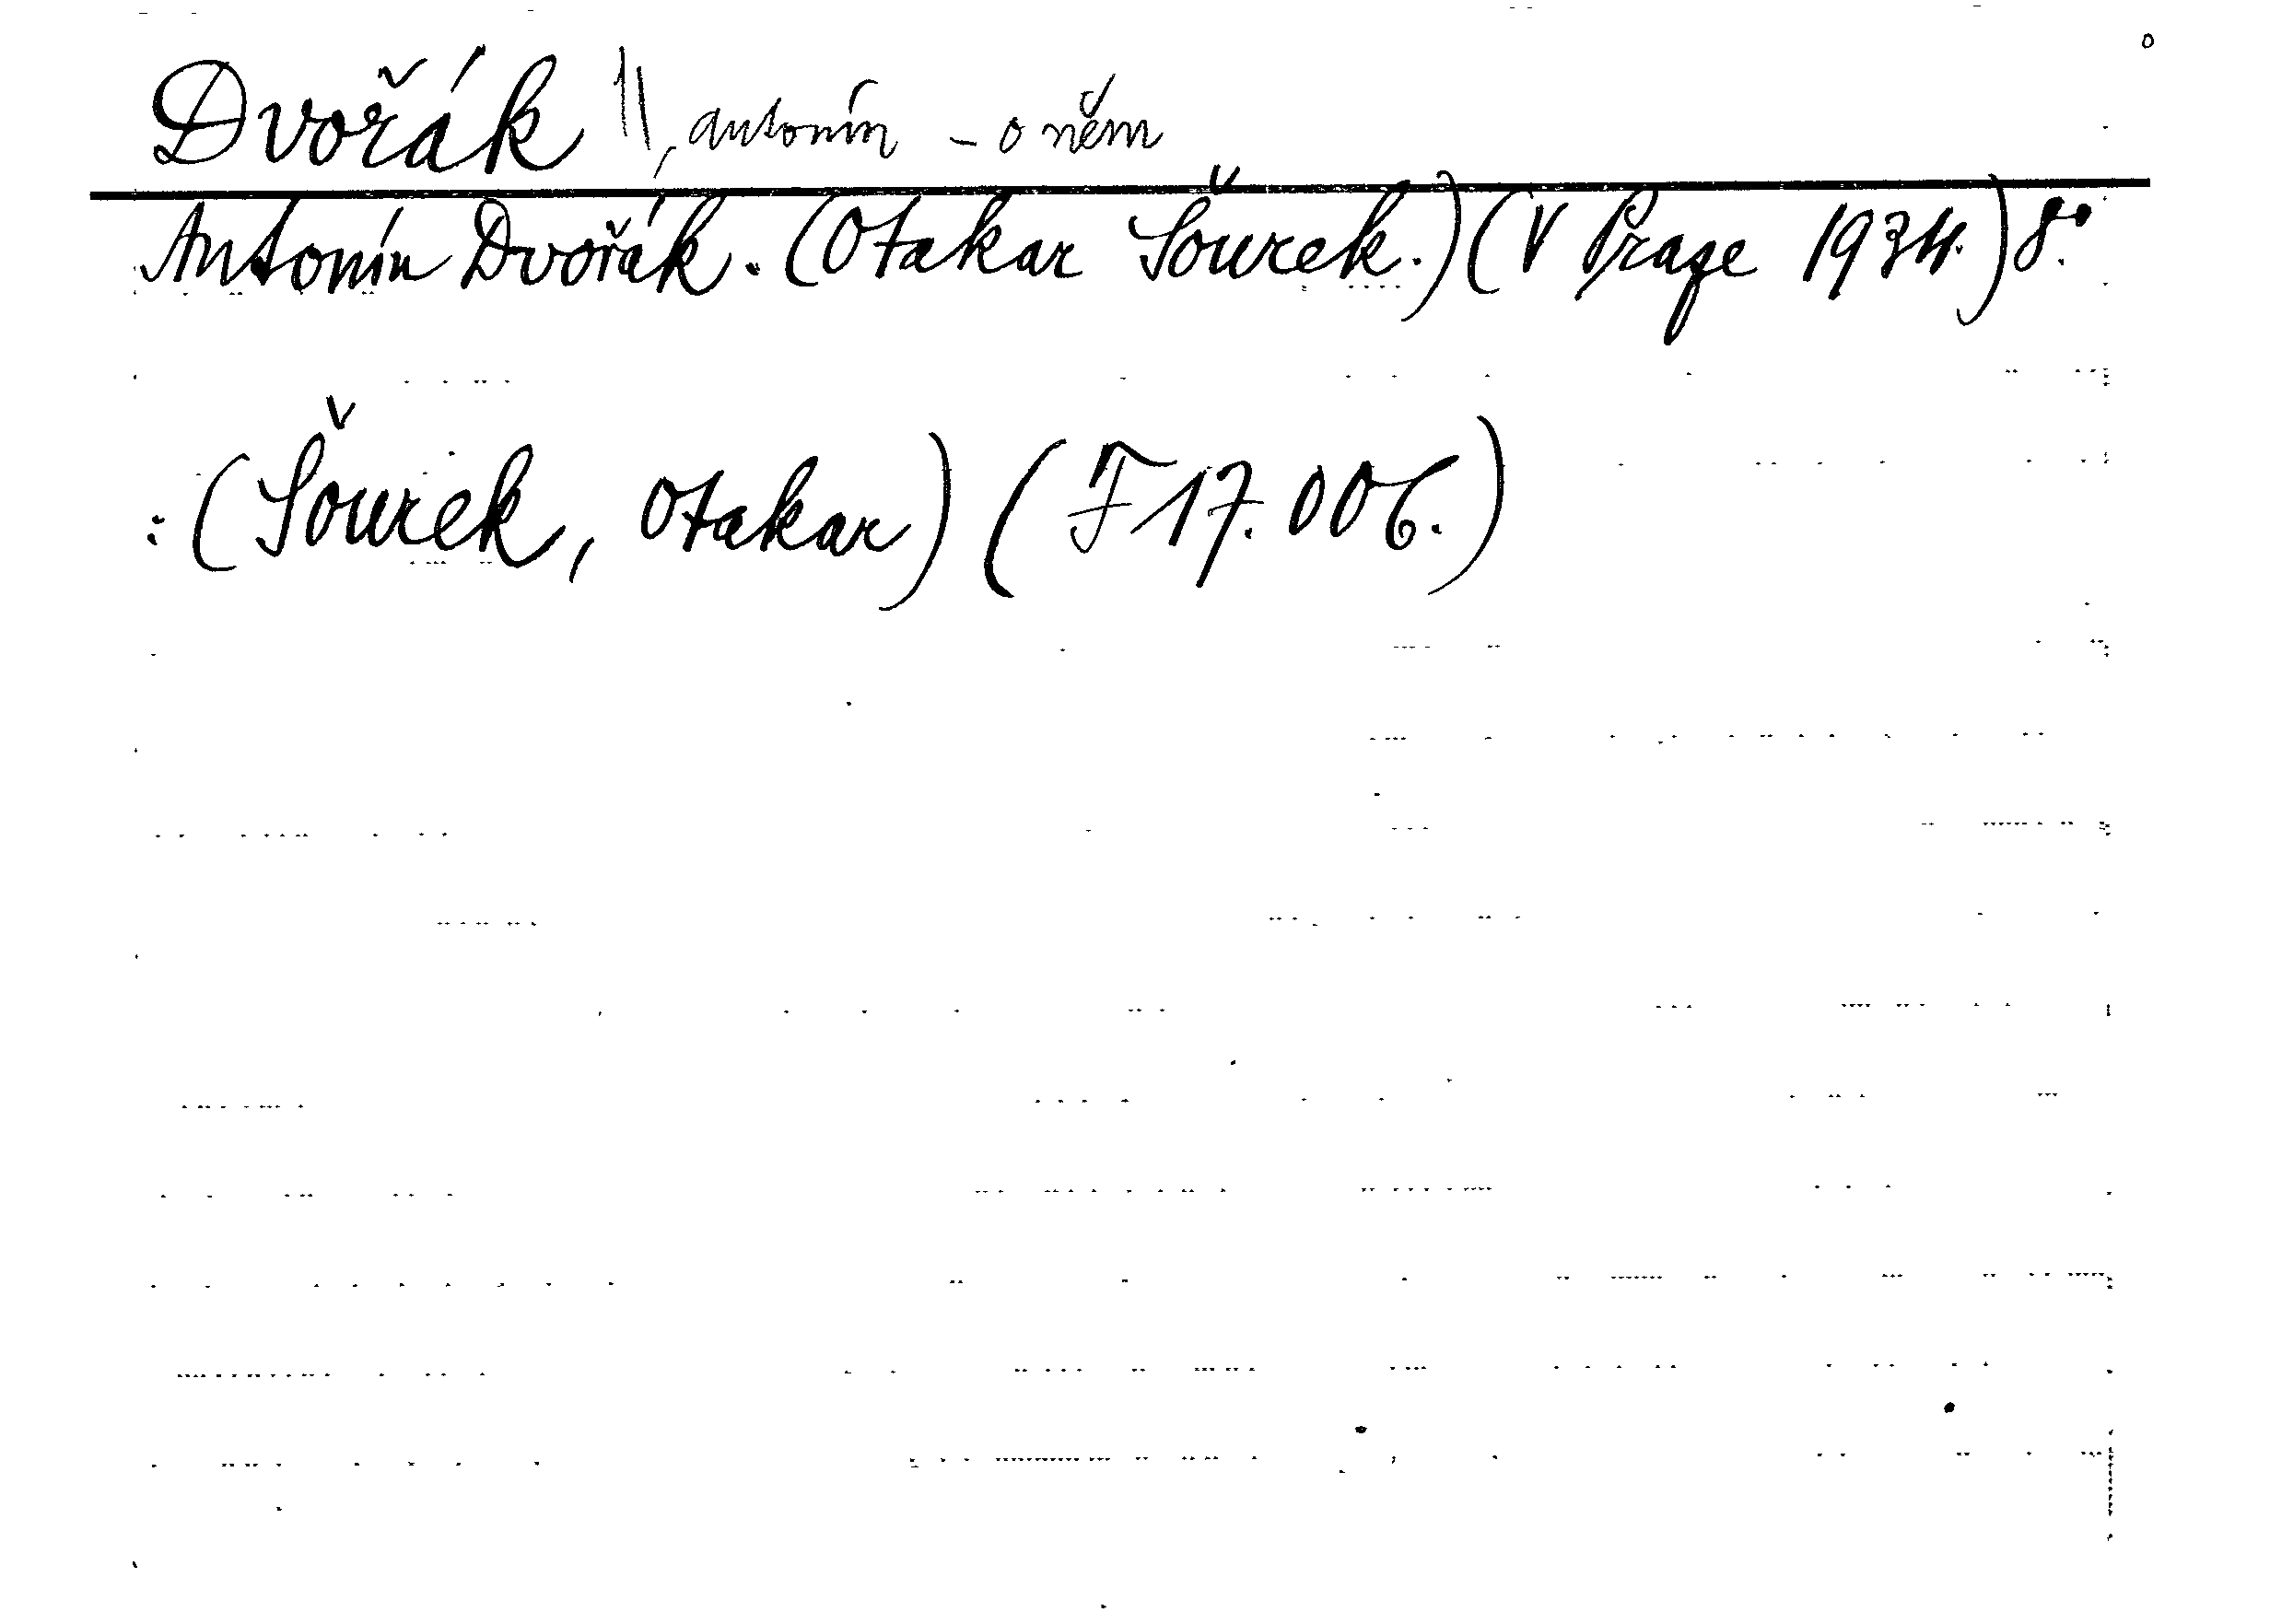 Dvořák, Antonín - o něm
Antonín Dvořák. (Otakar Šourek.) (V Praze 1934.) 8°.
: (Šourek, Otakar) (F 17.006.)